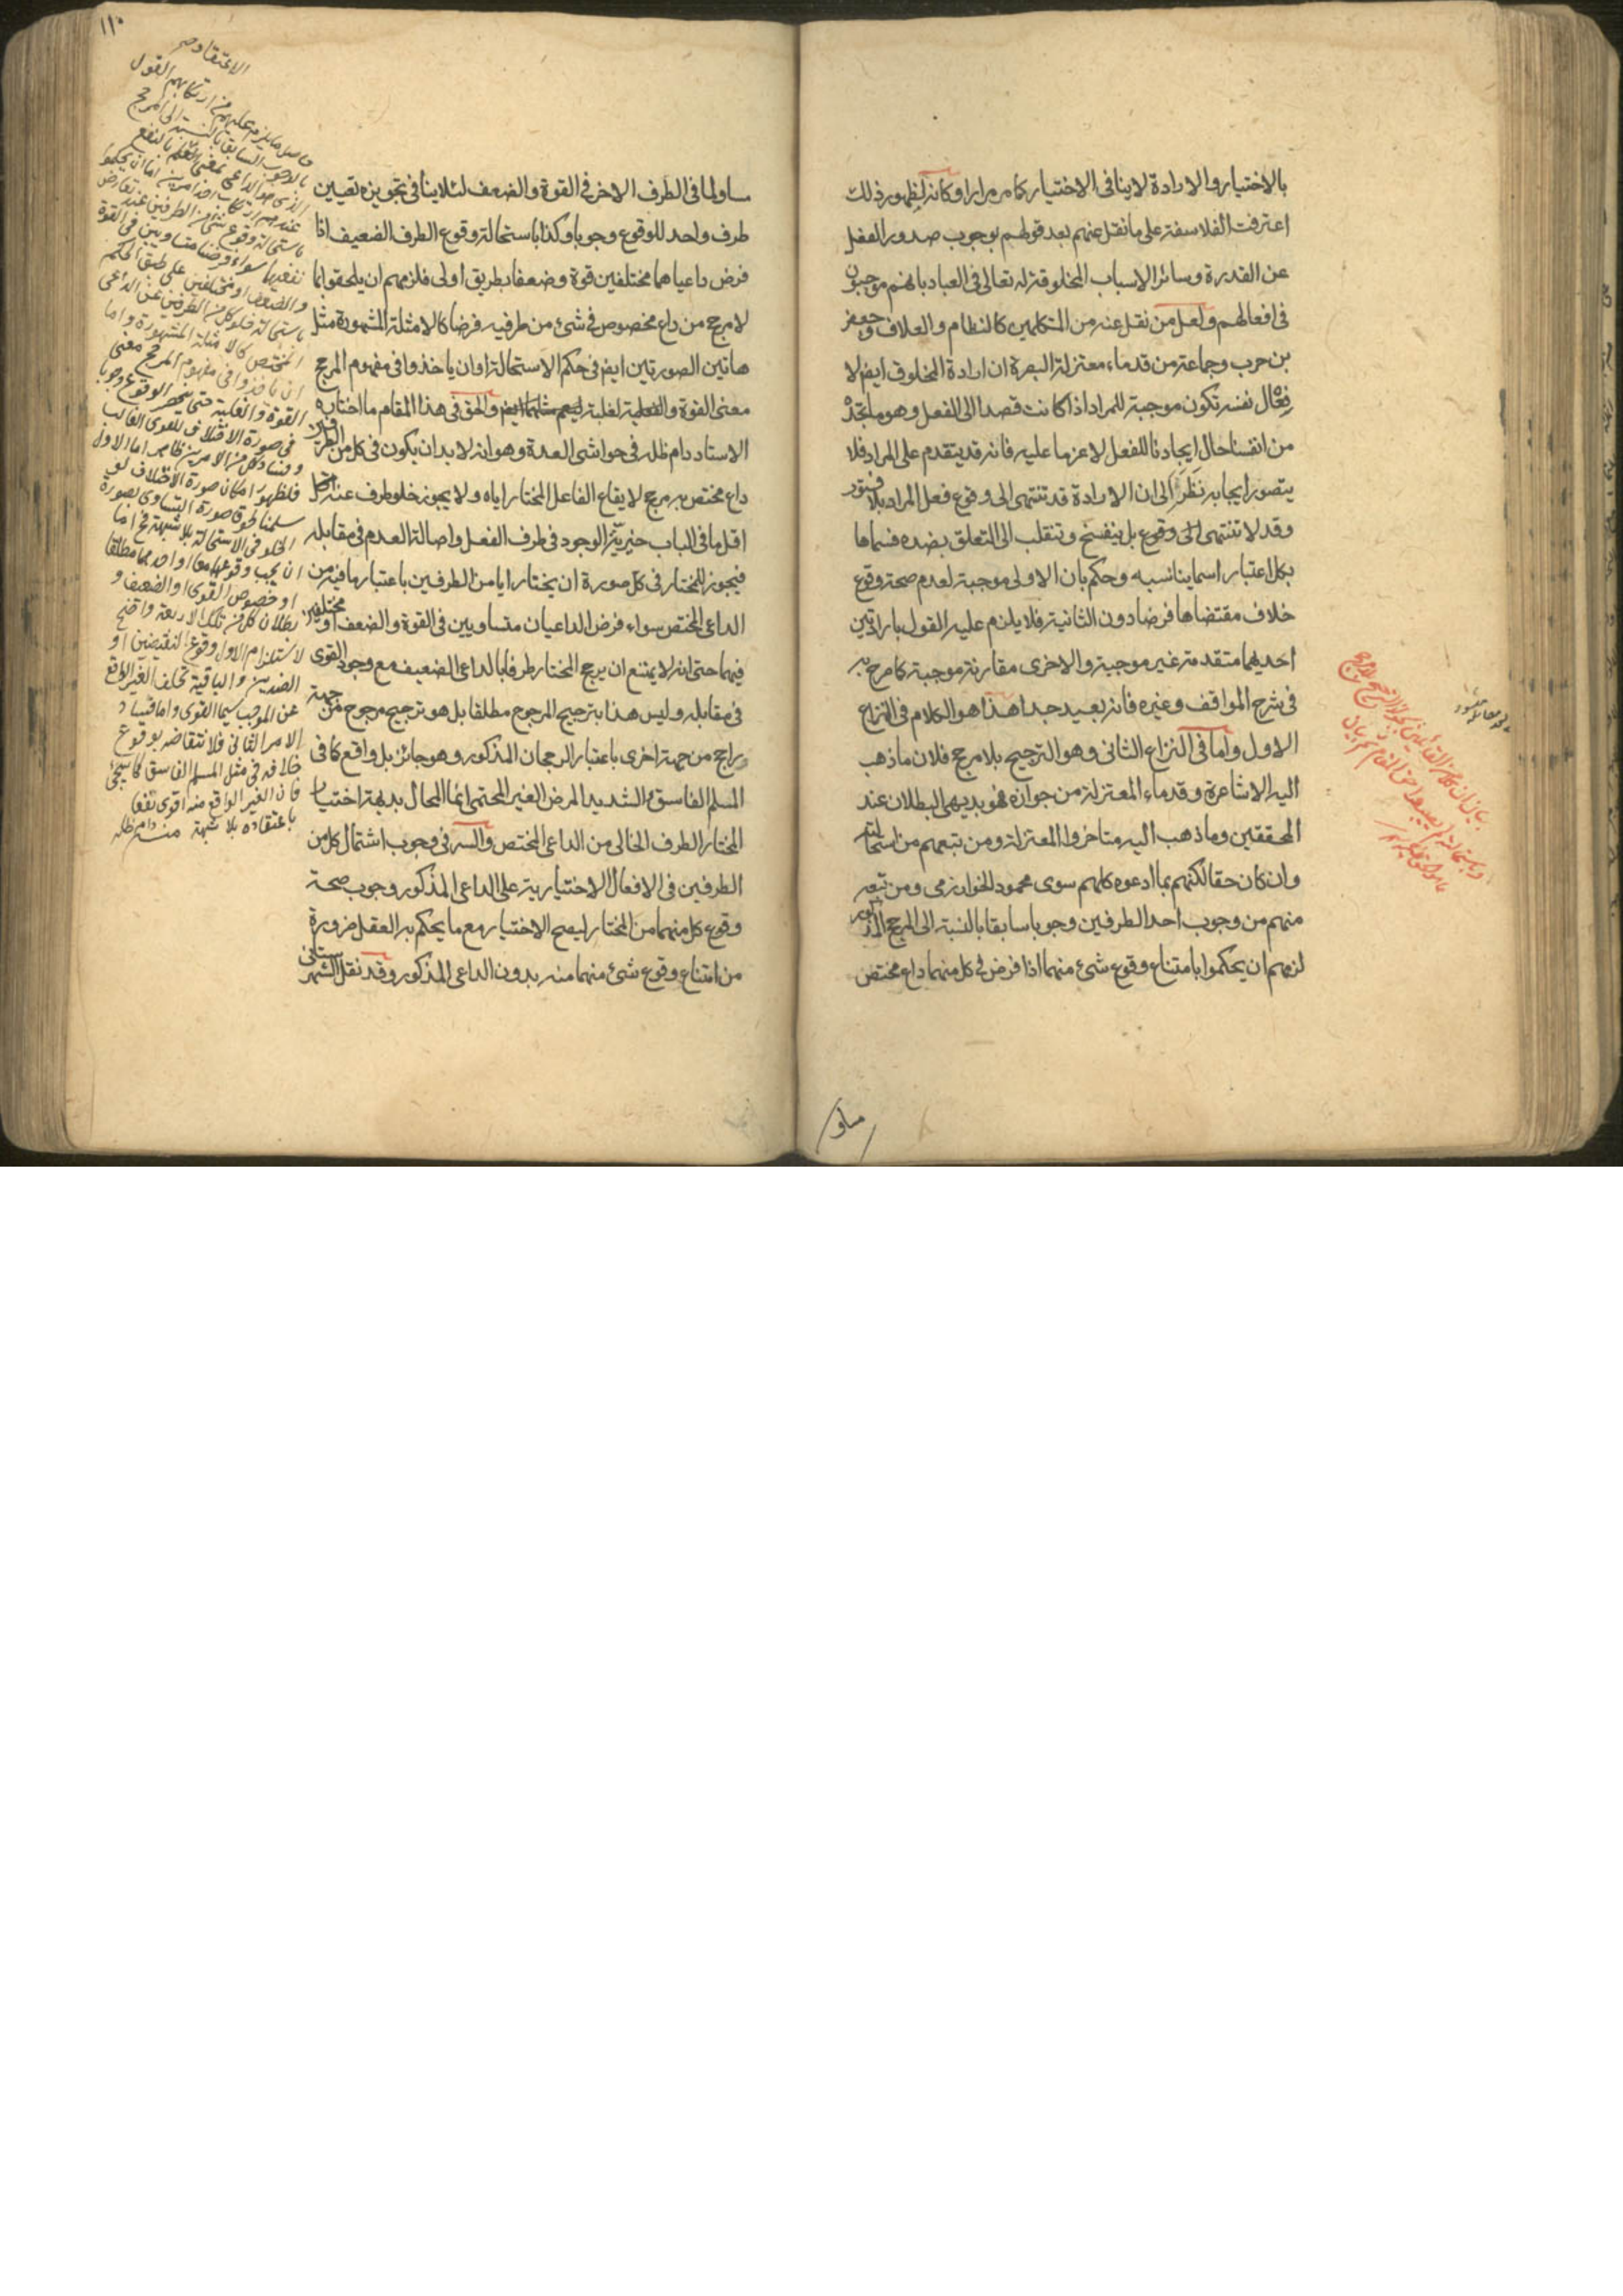 بالاختيار والارادة لاينافى الاختيار كما مر مرارا وكانه لظهور ذلك
اعترفت الفلاسفة على ما نقل عنهم بعد قولهم بوجوب صدور الفعل
عن القدرة وسائر الاسباب المخلوقة لله تعالى فى العباد بانهم موجبون
فى افعالهم ولعل من نقل عنه من المتكلمين كالنظام والعلاف وجعفر
بن حرب وجماعة من قدماء معتزلة البصرة ان ارادة المخلوق ايض لا
فعال نفسه تكون موجبة للمراد اذا كانت قصدا الى الفعل وهو ما نجده
من انفسنا حال ايجادنا للفعل لا عزما عليه فانه قد يتقدم على المراد فلا
يتصور ايجابه نظر الى ان الارادة قد تنتهى الى وقوع فعل المراد بلا فتور
وقد لا تنتهى الى وقوع بل ينفسخ وتنقلب الى التعلق بضده فسماها
بكل اعتبار اسما يناسبه وحكم بان الاولى موجبة لعدم صحة وقوع
خلاف مقتضاها فرضا دون الثانية فلا يلزم عليه القول بارادتين
احديهما متقدمة غير موجبة والاخرى مقارنة موجبة كما صرح به
فى شرح المواقف وغيره فانه بعيد جدا هذا هو الكلام فى النزاع
الاول واما فى النزاع الثانى وهو الترجيح بلا مرجح فلان ما ذهب
اليه الاشاعرة وقدماء المعتزلة من جوازه فهو بديهى البطلان عند
المحققين وما ذهب اليه متاخروا المعتزلة ومن تبعهم من استحالته
وان كان حقا لكنهم بما ادعوه كلهم سوى محمود الخوارزمى ومن تبعه
منهم من وجوب احد الطرفين وجوبا سابقا بالنسبة الى المرجح المذكور
لزمهم ان يحكموا بامتناع وقوع شئ منهما اذا فرض فى كل منهما داع مختص
مساو
١١٠
مساو لما فى الطرف الاخر فى القوة والضعف لئلا ينافى تجويزه تعيين
طرف واحد للوقوع وجوبا وكذا باستحالة وقوع الطرف الضعيف اذا
فرض داعياهما مختلفين قوة وضعفا بطريق اولى فلزمهم ان يلحقوا بما
لا مرجح من داع مخصوص فى شئ من طرفيه فرضا كالامثلة المشهورة مثل
هاتين الصورتين ايض فى حكم الاستحالة او ان ياخذوا فى مفهوم المرجح
معنى القوة والغلبة والحق فى هذا المقام ما اختاره
الاستاد دام ظله فى حواشى العدة وهو انه لا بد ان يكون فى كل من الطرفين
داع مختص به مرجح لايقاع الفاعل المختار اياه ولا يجوز خلو طرف عنه
اقل ما فى الباب خيرية الوجود فى طرف الفعل واصالة العدم فى مقابله
فيجوز للمختار فى كل صورة ان يختار ايا من الطرفين باعتبار ما فيه من
الداعى المختص سواء فرض الداعيان متساويين فى القوة والضعف او مختلفين
فيهما حتى انه لا يمتنع ان يرجح المختار طرفا بالداعى الضعيف مع وجود القوى
فى مقابله وليس هذا بترجيح المرجوح مطلقا بل هو ترجيح مرجوح من جهة
وراجح من جهة اخرى باعتبار الرجحان المذكور وهو جائز بل واقع كما فى
المسلم الفاسق والشديد المرض الغير المحتمى انما المحال بديهة اختيار
المختار الطرف الخالى من الداعى المختص والسر فى وجوب اشتمال كل من
الطرفين فى الافعال الاختيارية على الداعى المذكور وجوب صحة
وقوع كل منهما من المختار ليصح الاختيار مع ما يحكم به العقل ضرورة
من امتناع وقوع شئ منهما منه بدون الداعى المذكور وقد نقل الشهرستانى
بالوجوب السابق بالنسبة الى المرجح
الذى هو الداعى بمعنى العلم بالنفع
باستحالة وقوع شئ من الطرفين عند تعارض
نفعيهما سواء فرضا متساويين فى القوة
والضعف او مختلفين على طبق الحكم
باستحالة خلو كل من الطرفين عن الداعى
المختص كالامثلة المشهورة واما
ان ياخذوا فى مفهوم المرجح معنى
القوة والغلبة حتى ينحصر الوقوع وجوبا
فى صورة الاختلاف للقوى الغالب
وفساد كل من الامرين ظاهر اما الاول
فلظهور امكان صورة الاختلاف لو
سلمنا لحوق صورة التساوى بصورة
الخلو فى الاستحالة بلا شبهة فح اما
ان يجب وقوعهما معا او احدهما مطلقا
او خصوص القوى او الضعيف و
بطلان كل من تلك الاربعة واضح
لاستلزام الاول وقوع النقيضين او
الضدين والباقية تخلف الغير الواقع
عن الموجب سيما القوى واما فساد
الامر الثانى فلانتقاضه بوقوع
خلافه فى مثل المسلم الفاسق كما سيجئ
فان الغير الواقع منه اقوى نفعا
باعتقاده بلا شبهة منه دام ظله